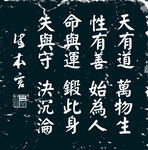 天有道 萬物生
性有善 始為人
命與運 鍛此身
失與守 決沉淪